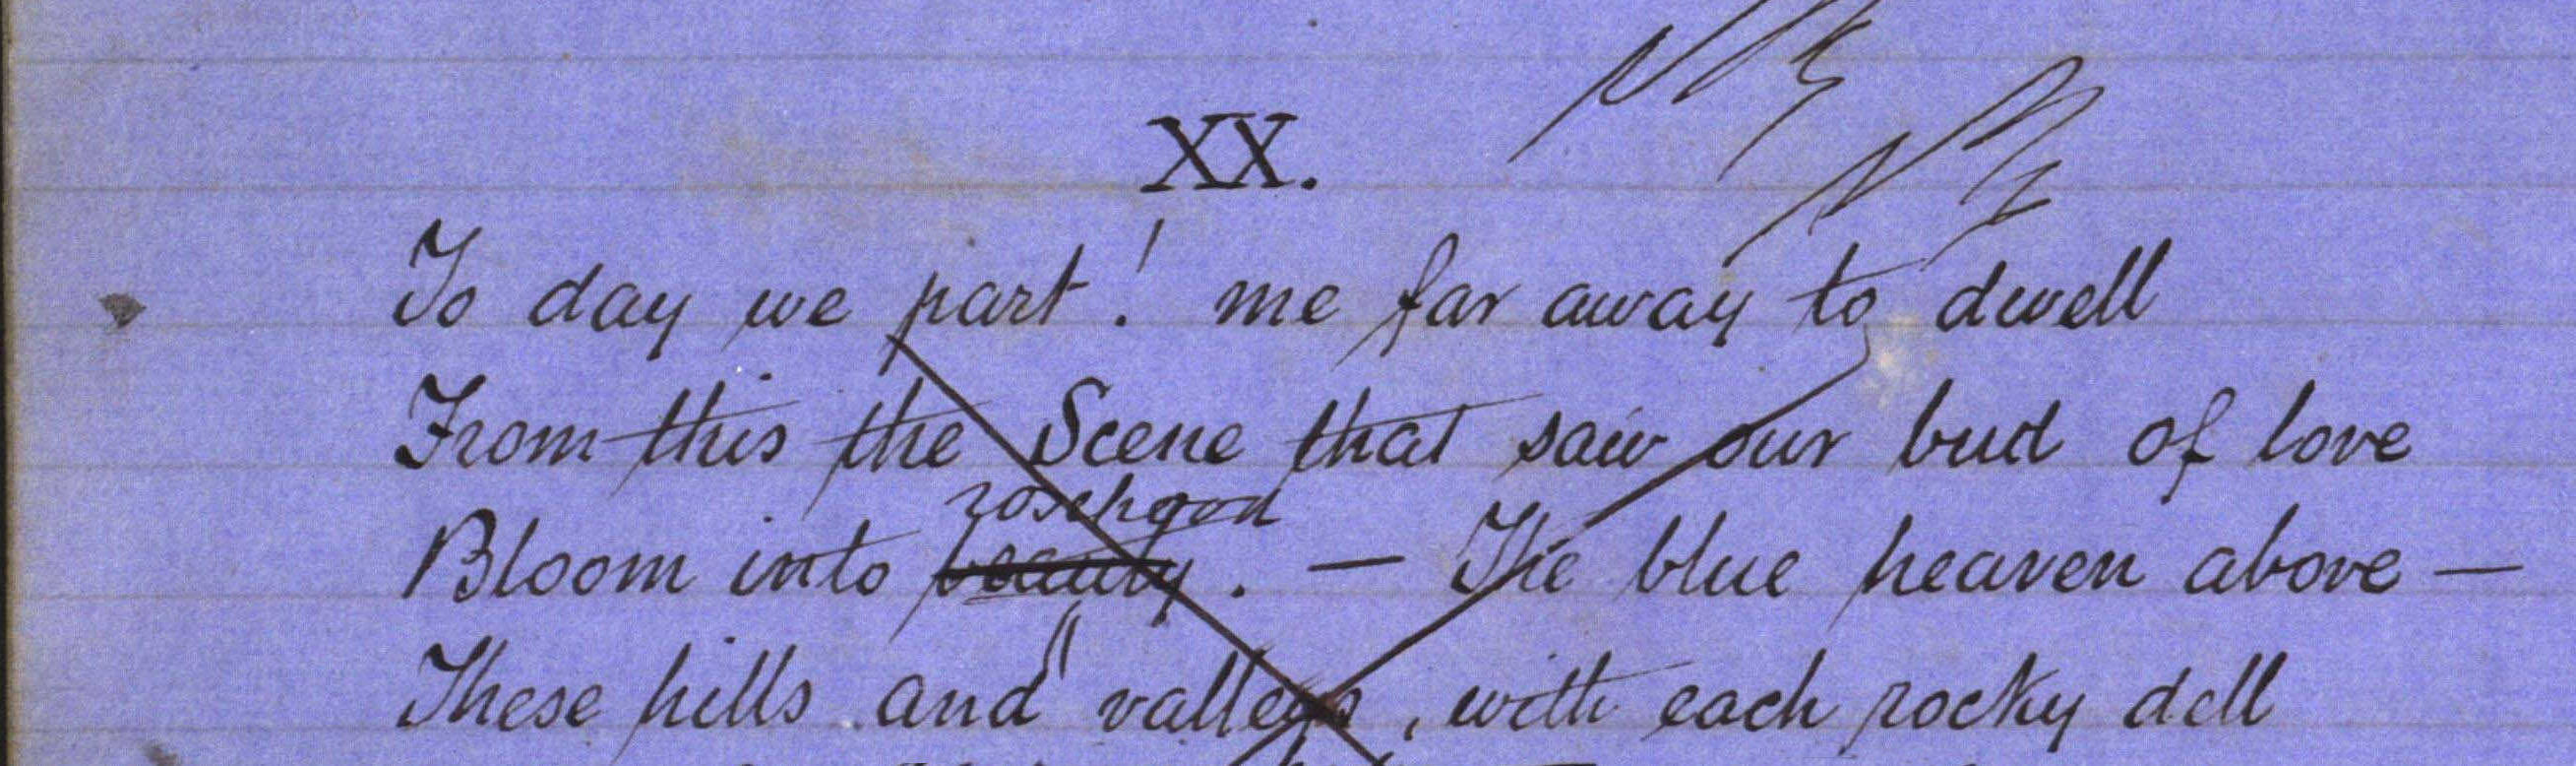 XX.
To day we part! me far away to dwell
From this the Scene that saw our bud of love
rosehood
Bloom into beauty. — The blue heaven above —
These hills and valleys, with each rocky dell